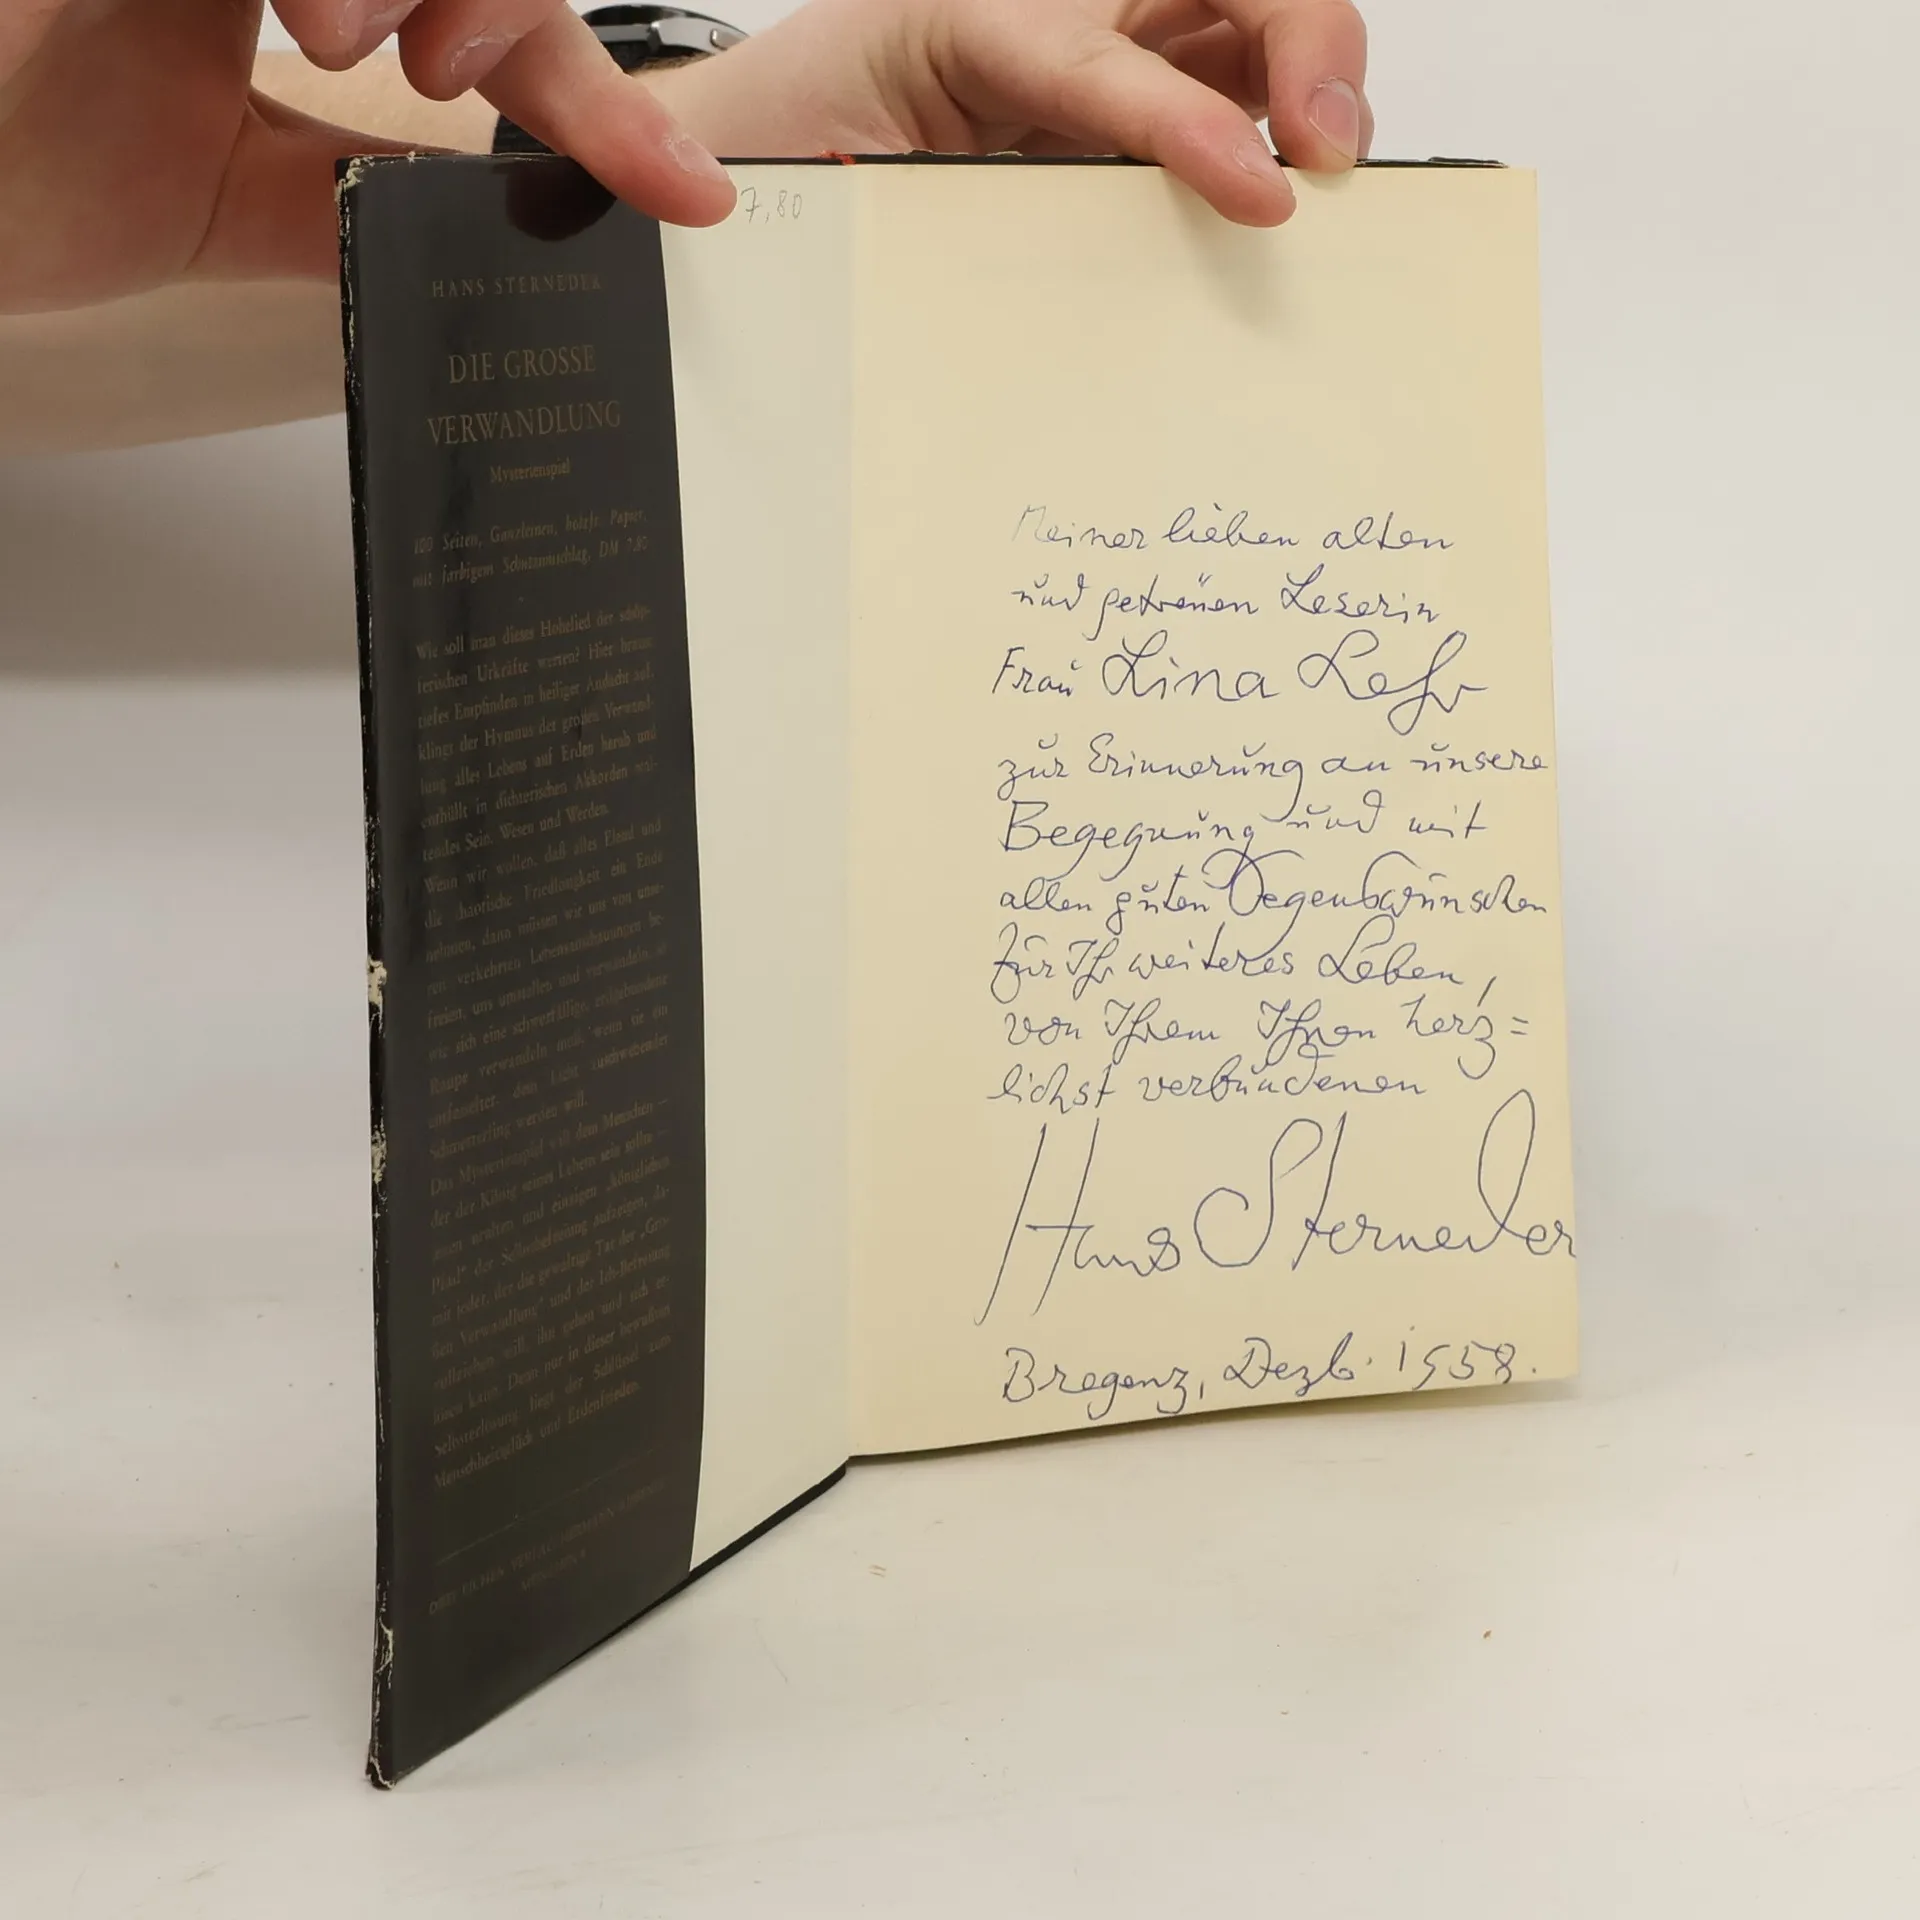 7,80
HANS STERNEDER
DIE GROSSE
VERWANDLUNG
Mysterienspiel
100 Seiten, Ganzleinen, holzfr. Papier,
mit farbigem Schutzumschlag, DM 7.80
Wie soll man dieses Hohelied der schöp-
ferischen Urkräfte werten? Hier braust
tiefes Empfinden in heiliger Andacht auf,
klingt der Hymnus der großen Verwand-
lung alles Lebens auf Erden herab und
enthüllt in dichterischen Akkorden wal-
tendes Sein, Wesen und Werden.
Wenn wir wollen, daß alles Elend und
die chaotische Friedlosigkeit ein Ende
nehmen, dann müssen wir uns von unse-
ren verkehrten Lebensanschauungen be-
freien, uns umstellen und verwandeln, so
wie sich eine schwerfällige, erdgebundene
Raupe verwandeln muß, wenn sie ein
entfalteter, dem Licht zuschwebender
Schmetterling werden will.
Das Mysterienspiel will dem Menschen —
der der König seines Lebens sein sollte —
uralten und einzigen „königlichen
Pfad" der Selbstbefreiung aufzeigen, da-
mit jeder, der die gewaltige Tat der „Gro-
ßen Verwandlung" und der Ich-Befreiung
vollziehen will, ihn gehen und sich er-
lösen kann. Denn nur in dieser bewußten
Selbsterlösung liegt der Schlüssel zum
Menschheitsglück und Erdenfrieden.
DREI EICHEN VERLAG HERMANN
Meiner lieben alten
und getreuen Leserin
Frau Lina Lehr
zur Erinnerung an unsere
Begegnung und mit
allen guten Segenswünschen
für Ihr weiteres Leben,
von Ihrem Ihnen herz=
lichst verbundenen
Hans Sterneder
Bregenz, Dezb. 1958.